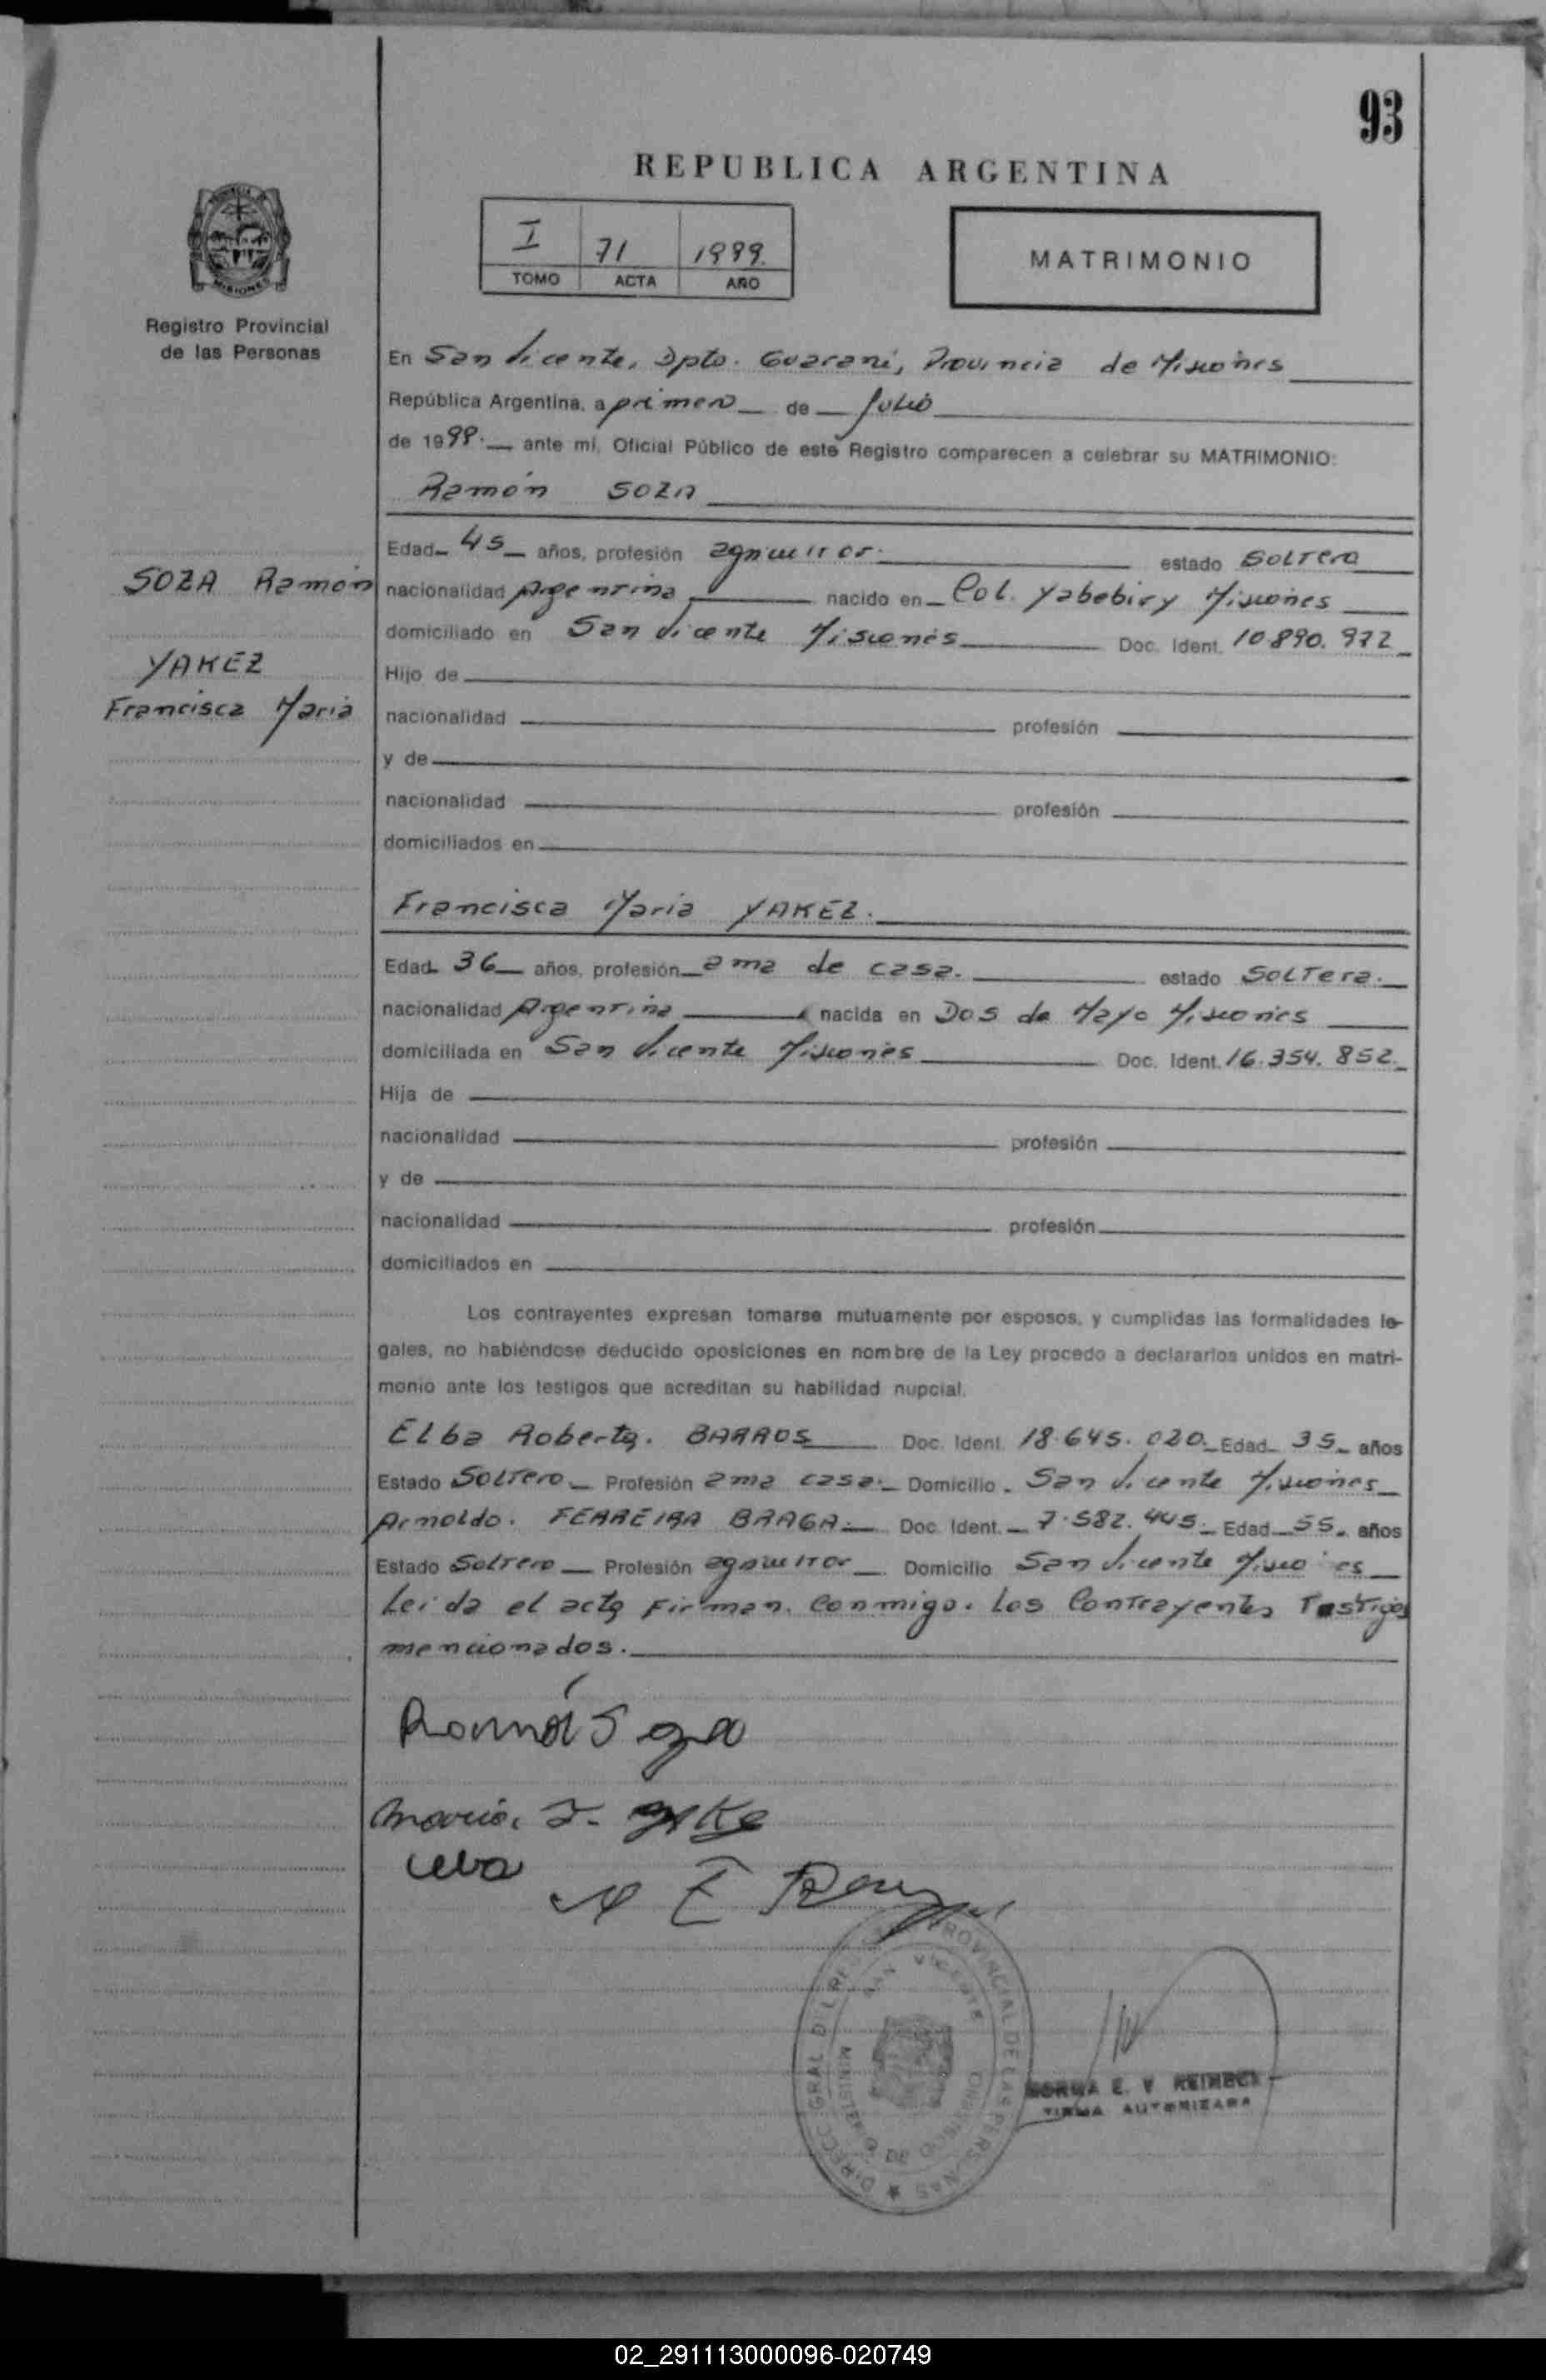 93
REPUBLICA ARGENTINA
I 71 1999.
TOMO ACTA AÑO
MATRIMONIO
MISIONES
Registro Provincial
de las Personas
En San Vicente, Dpto. Guaraní, Provincia de Misiones
República Argentina, a primero de Julio
de 1999. ante mí, Oficial Público de este Registro comparecen a celebrar su MATRIMONIO:
Ramón SOZA
Edad 45 años, profesión agricultor. estado Soltero
SOZA Ramón
nacionalidad Argentina nacido en Col. Yabebiry Misiones
domiciliado en San Vicente Misiones Doc. Ident. 10.890.972
YAKEZ
Francisca Maria
Hijo de
nacionalidad profesión
y de
nacionalidad profesión
domiciliados en
Francisca Maria YAKEZ.
Edad 36 años, profesión ama de casa. estado Soltera.
nacionalidad Argentina nacida en Dos de Mayo Misiones
domiciliada en San Vicente Misiones Doc. Ident. 16.354.852.
Hija de
nacionalidad profesión
y de
nacionalidad profesión
domiciliados en
Los contrayentes expresan tomarse mutuamente por esposos, y cumplidas las formalidades le-
gales, no habiéndose deducido oposiciones en nombre de la Ley procedo a declararlos unidos en matri-
monio ante los testigos que acreditan su habilidad nupcial.
Elba Roberta. BARROS Doc. Ident. 18.645.020. Edad 35 años
Estado Soltero Profesión ama casa. Domicilio San Vicente Misiones
Arnoldo. FERREIRA BRAGA. Doc. Ident. 7.582.445. Edad 55 años
Estado Soltero Profesión agricultor Domicilio San Vicente Misiones
Leida el acta Firman. Conmigo. Los Contrayentes Testigos
mencionados.
Ramón Soza
Maria. F.
A E
DIRECC. GRAL. DEL REG. PROVINCIAL DE LAS PERSONAS
SAN VICENTE
MINISTERIO DE GOBIERNO
NORMA E. V. REIMECK
FIRMA AUTORIZADA
02_291113000096-020749